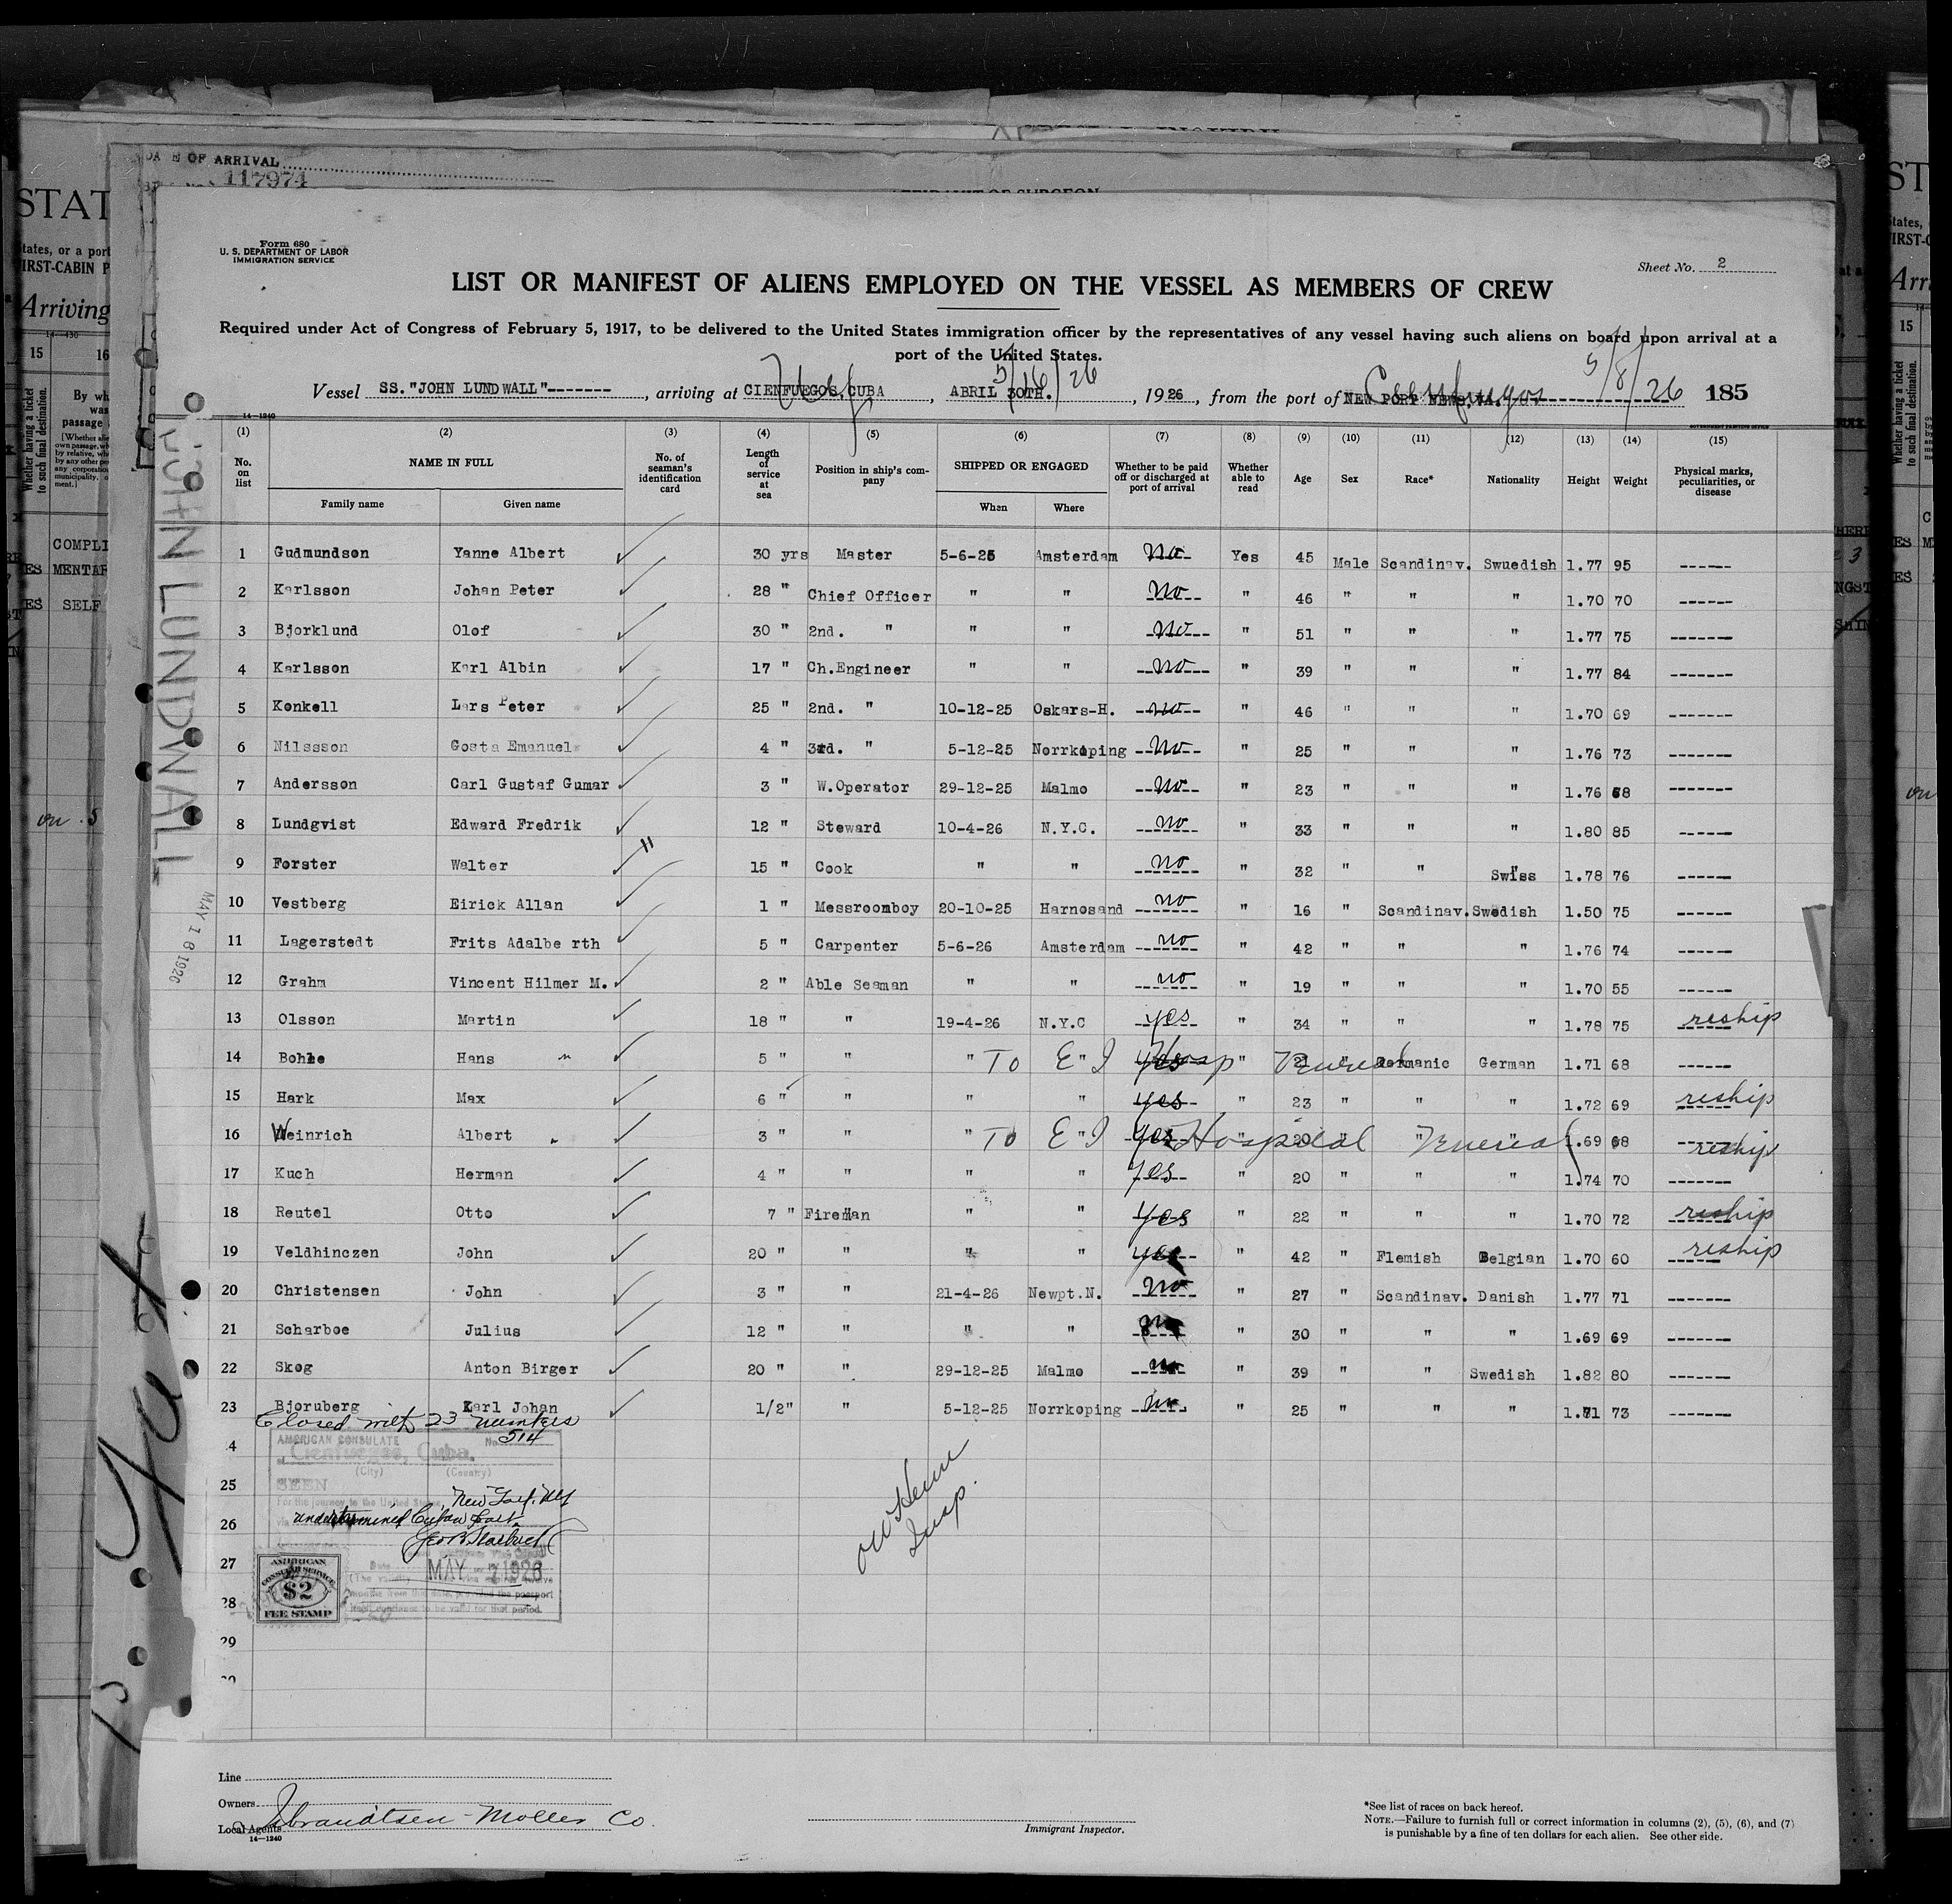 DATE OF ARRIVAL
117974
Form 680
U. S. DEPARTMENT OF LABOR
IMMIGRATION SERVICE
Sheet No. 2
LIST OR MANIFEST OF ALIENS EMPLOYED ON THE VESSEL AS MEMBERS OF CREW
Required under Act of Congress of February 5, 1917, to be delivered to the United States immigration officer by the representatives of any vessel having such aliens on board upon arrival at a
port of the United States.
5/16/26 5/8/26
Vessel SS. "JOHN LUNDWALL"-------, arriving at CIENFUEGOS, CUBA, ABRIL 30TH., 1926, from the port of NEW PORT NEWS, VA. Cienfuegos 185
14-1240
(1) (2) (3) (4) (5) (6) (7) (8) (9) (10) (11) (12) (13) (14) (15)
No. on list NAME IN FULL Family name Given name No. of seaman's identification card Length of service at sea Position in ship's company SHIPPED OR ENGAGED When Where Whether to be paid off or discharged at port of arrival Whether able to read Age Sex Race* Nationality Height Weight Physical marks, peculiarities, or disease
1 Gudmundson Yanne Albert 30 yrs Master 5-6-25 Amsterdam No Yes 45 Male Scandinav. Swuedish 1.77 95 -----
2 Karlsson Johan Peter 28 " Chief Officer " " No " 46 " " " 1.70 70 ------
3 Bjorklund Olof 30 " 2nd. " " " No " 51 " " " 1.77 75 -------
4 Karlsson Karl Albin 17 " Ch.Engineer " " No " 39 " " " 1.77 84 -------
5 Konkell Lars Peter 25 " 2nd. " 10-12-25 Oskars-H. No " 46 " " " 1.70 69 -------
6 Nilssson Gosta Emanuel 4 " 3rd. " 5-12-25 Norrkoping No " 25 " " " 1.76 73 -------
7 Andersson Carl Gustaf Gumar 3 " W.Operator 29-12-25 Malmo No " 23 " " " 1.76 68 -------
8 Lundgvist Edward Fredrik 12 " Steward 10-4-26 N.Y.C. no " 33 " " " 1.80 85 ------
9 Forster Walter 15 " Cook " " no " 32 " " Swiss 1.78 76 ------
10 Vestberg Eirick Allan 1 " Messroomboy 20-10-25 Harnosand no " 16 " Scandinav. Swedish 1.50 75 ------
11 Lagerstedt Frits Adalbe rth 5 " Carpenter 5-6-26 Amsterdam no " 42 " " " 1.76 74 ------
12 Grahm Vincent Hilmer M. 2 " Able Seaman " " no " 19 " " " 1.70 55 ------
13 Olsson Martin 18 " " 19-4-26 N.Y.C yes " 34 " " " 1.78 75 reship
14 Bohle Hans 5 " " " " To E I Hosp Venereal yes " 21 " Germanic German 1.71 68 ------
15 Hark Max 6 " " " " yes " 23 " " " 1.72 69 reship
16 Weinrich Albert 3 " " " " To E I Hospital Venereal yes " 20 " " " 1.69 68 reship
17 Kuch Herman 4 " " " " Yes " 20 " " " 1.74 70 -------
18 Reutel Otto 7 " FireMan " " yes " 22 " " " 1.70 72 reship
19 Veldhinczen John 20 " " " " yes " 42 " Flemish Belgian 1.70 60 reship
20 Christensen John 3 " " 21-4-26 Newpt.N. No " 27 " Scandinav. Danish 1.77 71 -------
21 Scharboe Julius 12 " " " " no " 30 " " " 1.69 69 -------
22 Skog Anton Birger 20 " " 29-12-25 Malmo no " 39 " " Swedish 1.82 80 -------
23 Bjoruberg Karl Johan 1/2" " 5-12-25 Norrkoping no " 25 " " " 1.71 73 -------
Closed with 23 numbers
4
AMERICAN CONSULATE No. 514
Cienfuegos, Cuba.
(City) (Country)
25
SEEN
For the journey to the United States
New York, Ny
26
undetermined Cuban port
27
MAY 7 1926
28
AMERICAN
CONSULAR SERVICE
$2
FEE STAMP
29
Insp.
JOHN LUNDWALL
MAY 18 1926
Line
Owners
Local Agents Isbrandtsen-Moller Co.
14-1240
Immigrant Inspector.
*See list of races on back hereof.
NOTE.—Failure to furnish full or correct information in columns (2), (5), (6), and (7)
is punishable by a fine of ten dollars for each alien. See other side.